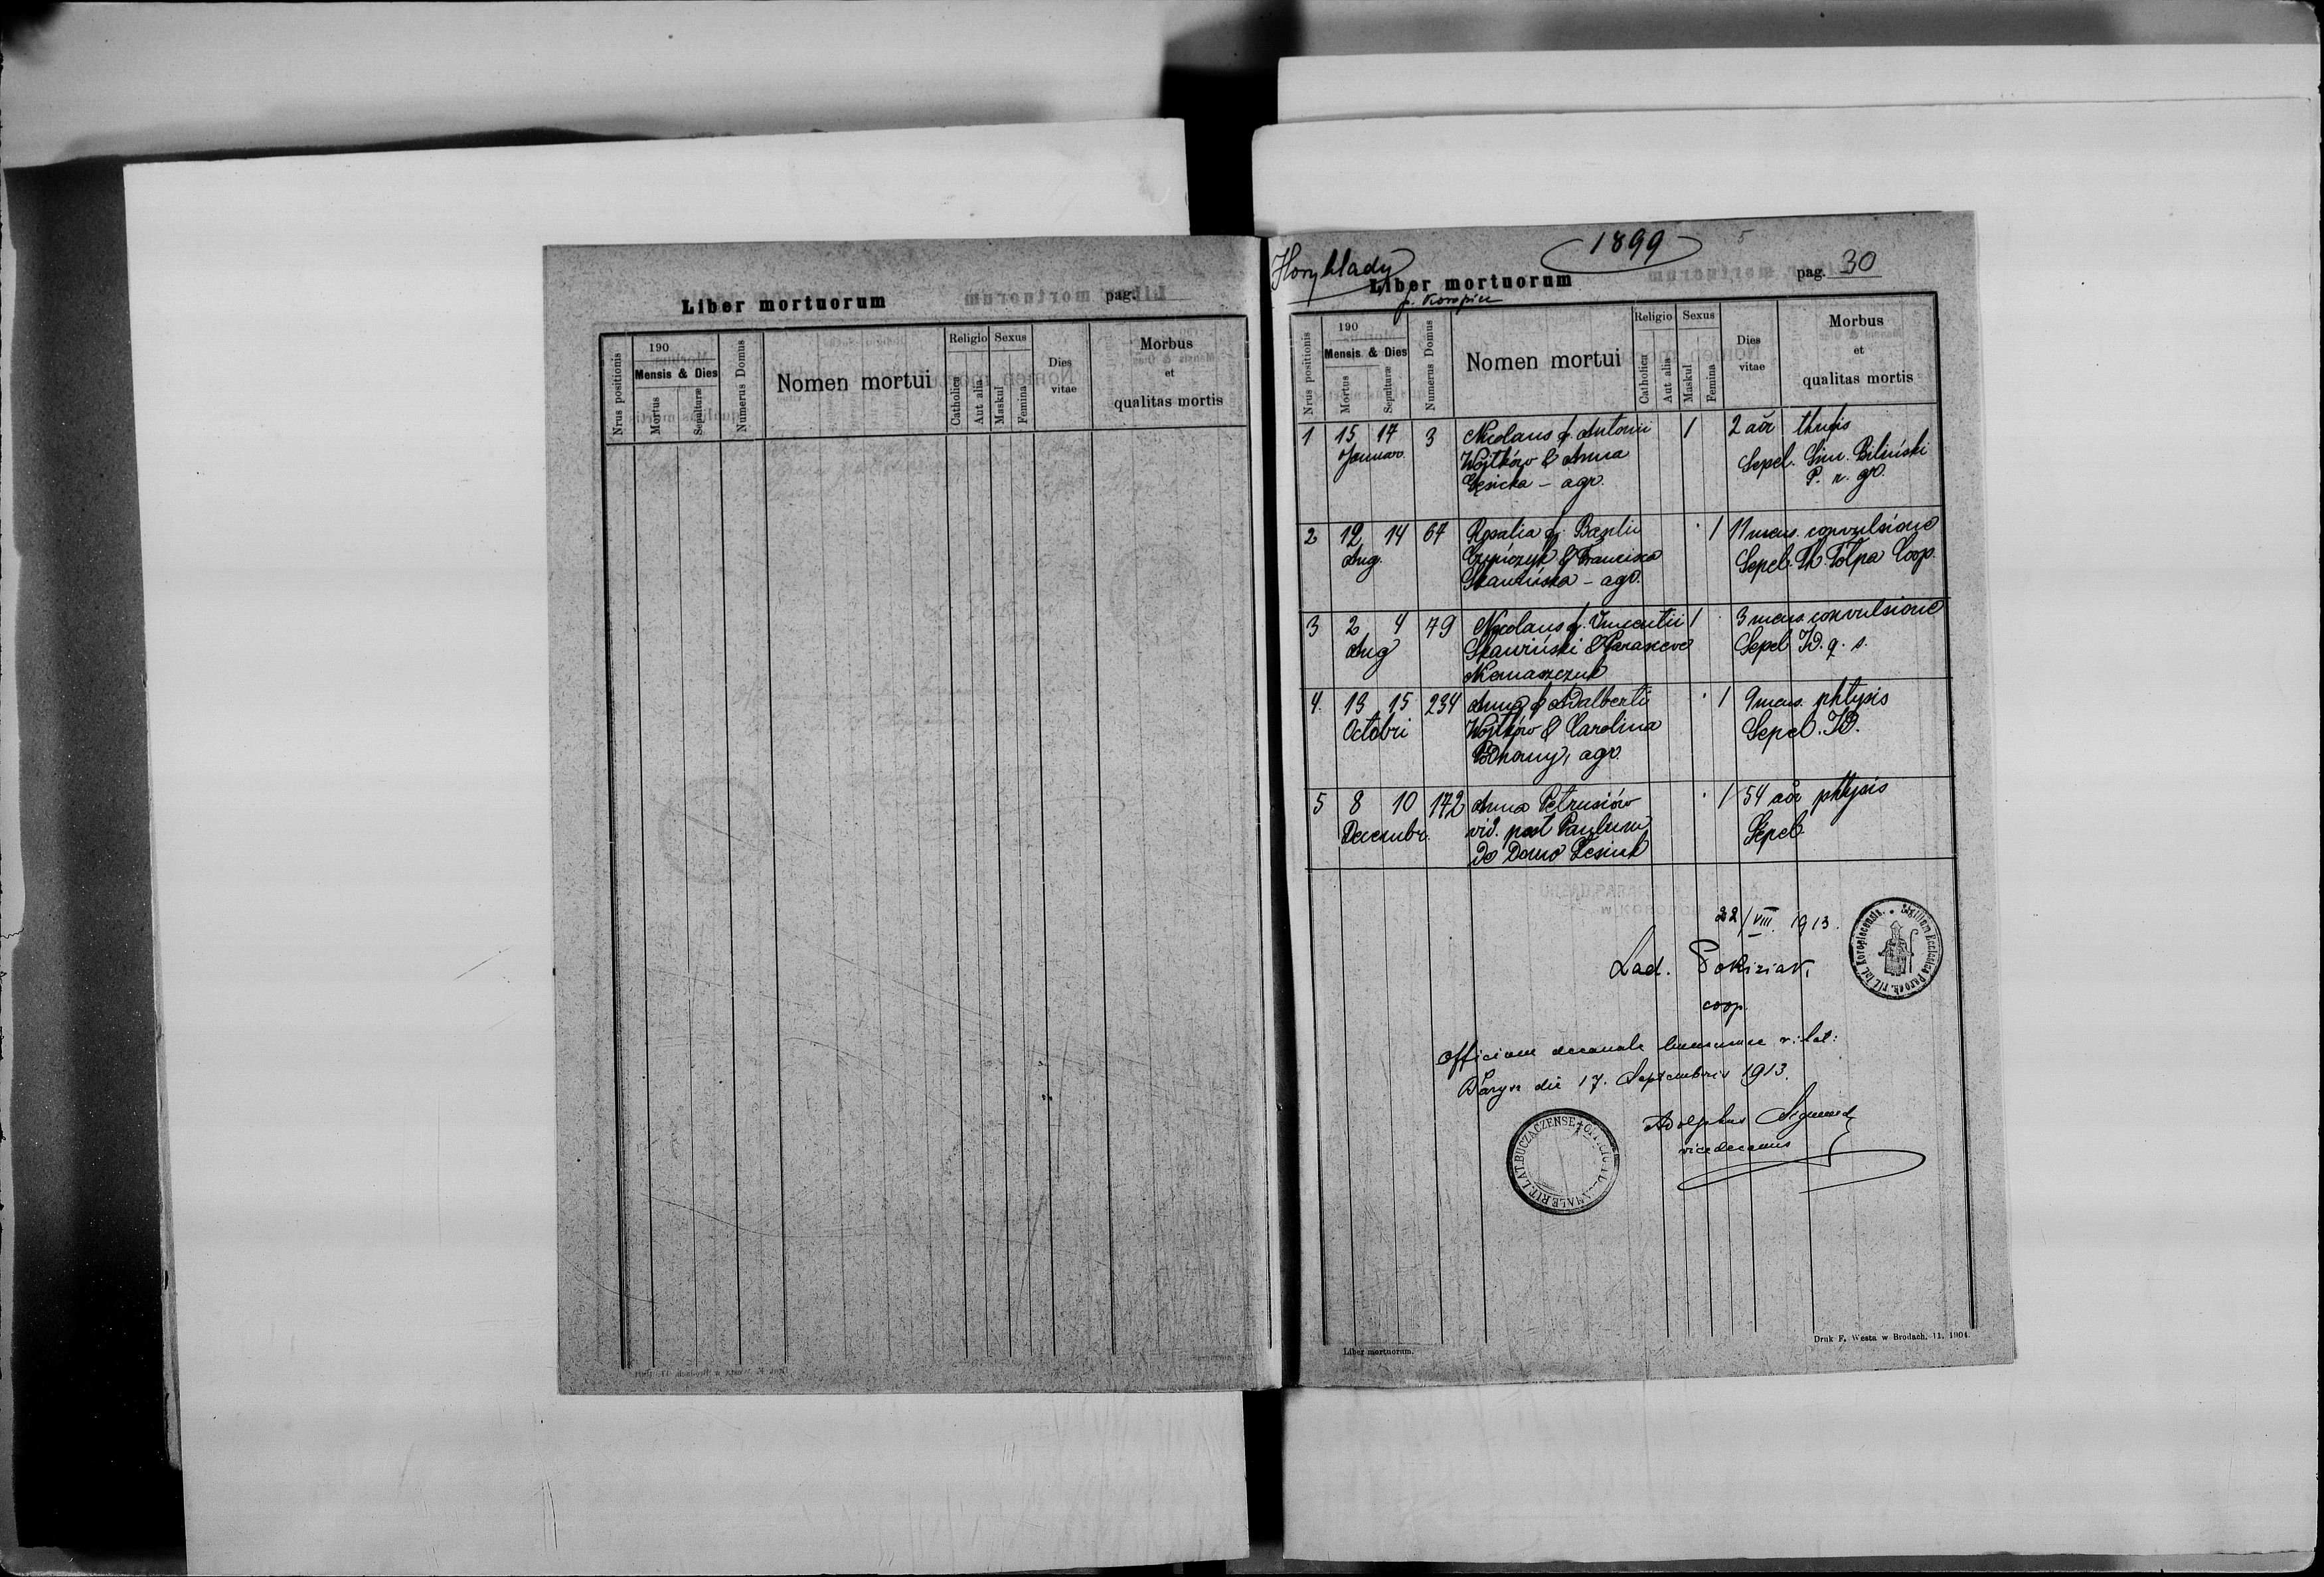 Liber mortuorum
pag.
Nrus positionis
190
Mensis & Dies
Mortus
Sepulturæ
Numerus Domus
Nomen mortui
Religio
Catholica
Aut alia
Sexus
Maskul
Femina
Dies
vitae
Morbus
et
qualitas mortis
1899
5
Horyhlady
Liber mortuorum
pag. 30
p. Koropiec
Nrus positionis
190
Mensis & Dies
Mortus
Sepulturæ
Numerus Domus
Nomen mortui
Religio
Catholica
Aut alia
Sexus
Maskul
Femina
Dies
vitae
Morbus
et
qualitas mortis
1 15 17 3 Nicolaus f. Antonii 1 2 aor
Januar. Wojtków & Anna Sepel. Sim. Biliński
agr. P. r. gr.
2 12 14 67 Rosalia f. Basilii 1 11 mens. convulsione
Aug. & Francisca Sepel. Th. Tołpa Coop.
Skawińska - agr.
3 2 4 79 Nicolaus f. Vincentii 1 3 mens. convulsione
Aug Skawiński & Parasceve Sepel. Id. q. s.
4. 13 15 234 Anna f. Adalberti 1 9 mens. phtysis
Octobri Wojtków & Carolina Sepel. Id.
agr.
5 8 10 172 Anna Petrusiów 1 54 aor phtysis
Decembr. vid. post Paulum Sepel.
de Domo Lesiuk
22/VIII. 1913.
Lad.
coop.
Sigillum Ecclesiae Paroch. rit. lat. Koropiecensis.
Officium decanale rit. lat:
die 17. Septembris 1913.
Adolphus
vicedecanus
LAT. BUCZACZENSE
Liber mortuorum.
Druk F. Westa w Brodach. 11. 1904.